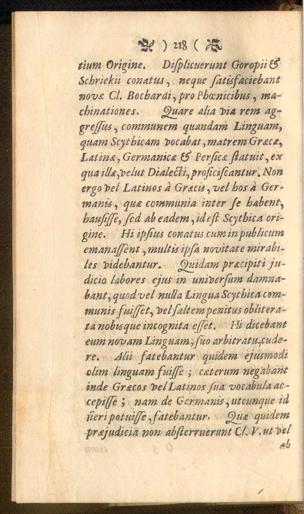 ) 218 (
tium Origine. Displicuerunt Goropii &
Schriekii conatus, neque satisfaciebant
novæ Cl. Bochardi, pro Phœnicibus, ma-
chinationes. Quare alia via rem ag-
gressus, communem quandam Linguam,
quam Scythicam vocabat, matrem Græcæ,
Latinæ, Germanicæ & Persicæ statuit, ex
qua illæ, velut Dialecti, proficiscantur. Non
ergo vel Latinos à Græcis, vel hos à Ger-
manis, quæ communia inter se habent,
hausisse, sed ab eadem, id est Scythica ori-
gine. Hi ipsius conatus cum in publicum
emanassent, multis ipsa novitate mirabi-
les videbantur. Quidam præcipiti ju-
dicio labores ejus in universum damna-
bant, quod vel nulla Lingua Scythica com-
munis fuisset, vel saltem penitus oblitera-
ta nobisque incognita esset. Hi dicebant
eum novam Linguam, suo arbitratu, cude-
re. Alii fatebantur quidem ejusmodi
olim linguam fuisse; cæterum negabant
inde Græcos vel Latinos sua vocabula ac-
cepisse; nam de Germanis, utcunque id
fieri potuisse, fatebantur. Quæ quidem
præjudicia non absterruerunt Cl. V. ut vel
ab